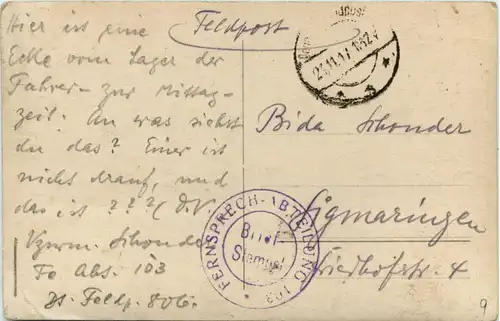 Hier ist eine
Ecke vom Lager der
Fahrer - zur Mittag-
zeit. An was siehst
du das? Einer ist
nicht drauf, und
das ist ???
Schonder
Fe Abt. 103
Feldp. 806.
Feldpost
23.11.17
Bida Schonder
Sigmaringen
Friedhofstr. 4
FERNSPRECH-ABTEILUNG 103
Brief
Stempel
9